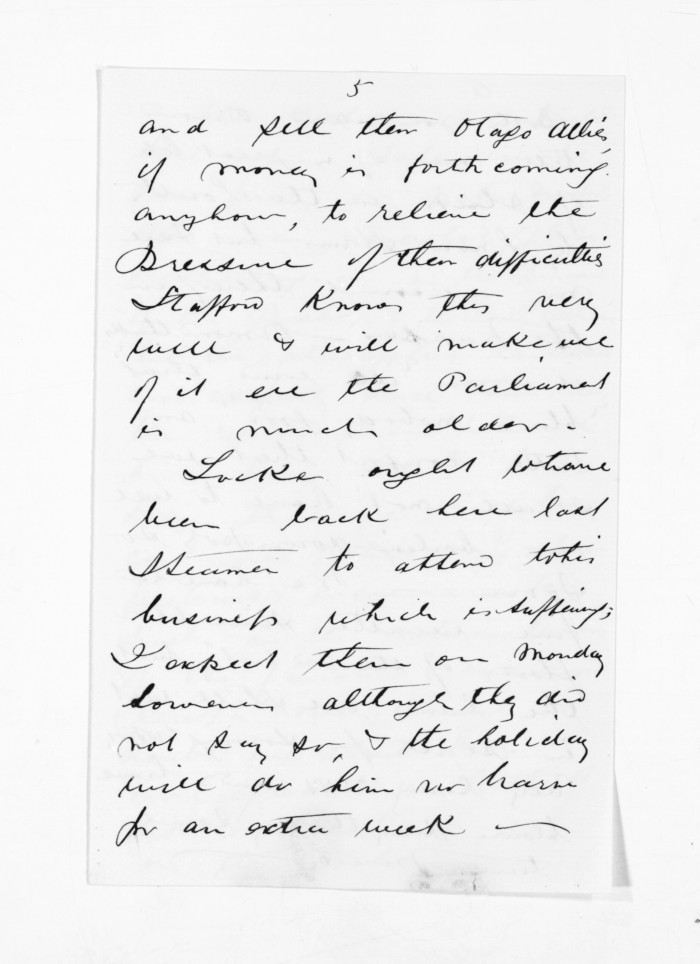 5
and sell their Otago Allies
if money is forthcoming.
anyhow, to relieve the
Pressure of their difficulties
Stafford knows this very
well & will make use
of it ere the Parliament
is much older -
Locke ought to have
been back here last
Steamer to attend to his
business which is suffering;
I expect them on Monday
however although they did
not say so, & the holiday
will do him no harm
for an extra week —